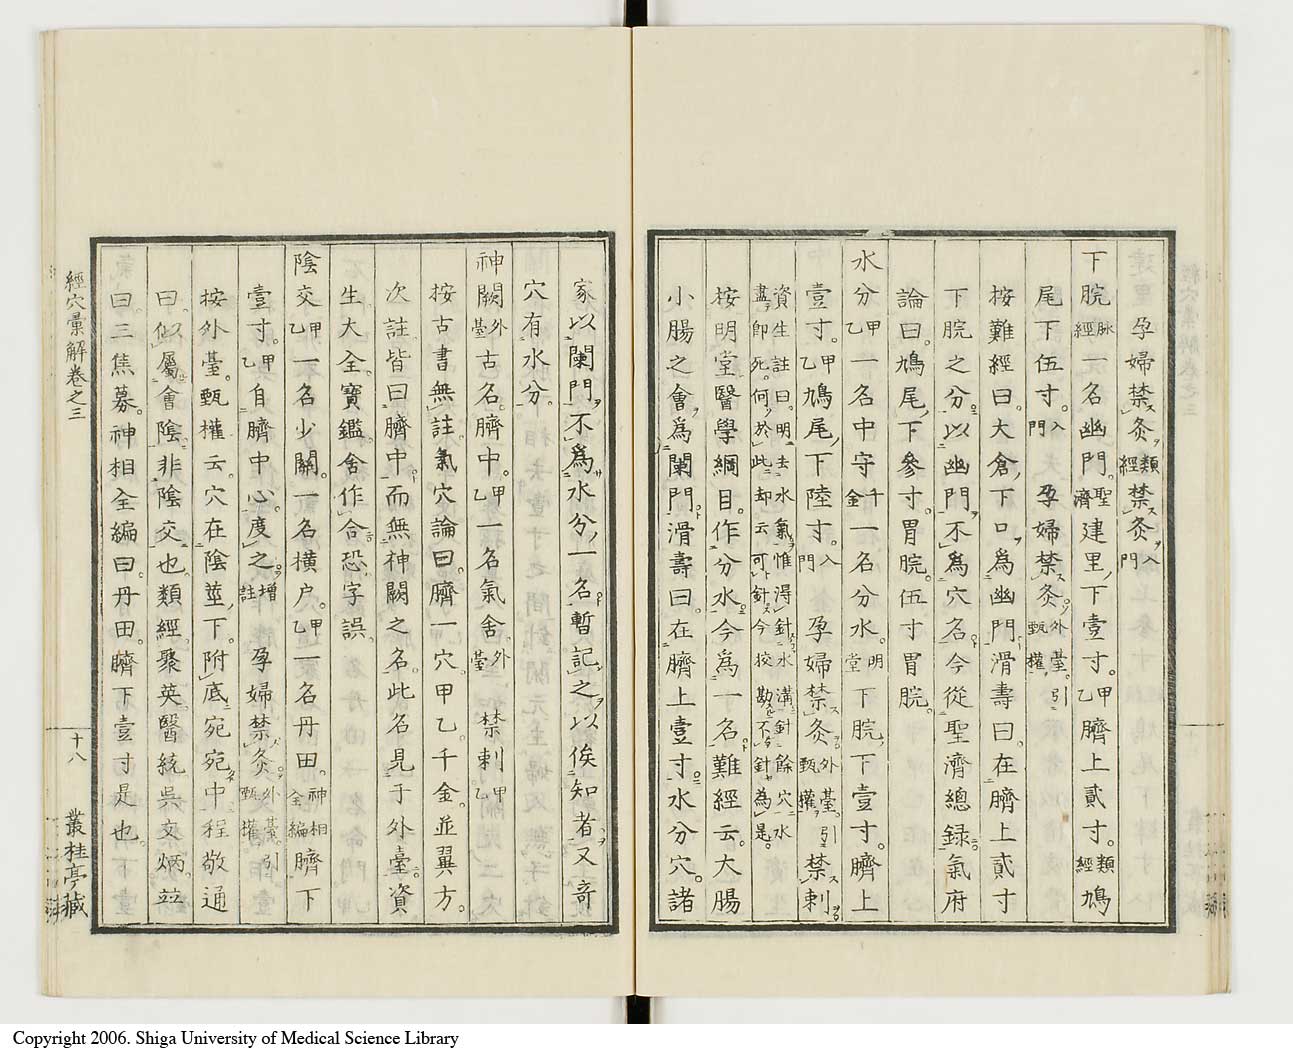 孕婦禁灸類經禁灸入門
下脘脉經一名幽門聖濟建里下壹寸甲乙臍上貳寸類經鳩
尾下伍寸入門孕婦禁灸外臺引甄權
按難經曰大倉下口爲幽門滑壽曰在臍上貳寸
下脘之分以幽門不爲穴名今從聖濟總録氣府
論曰鳩尾下參寸胃脘伍寸胃脘
水分甲乙一名中守千金一名分水明堂下脘下壹寸臍上
壹寸甲乙鳩尾下陸寸入門孕婦禁灸外臺引甄權禁刺
資生註曰明去水氣惟得針水溝針餘穴水
盡卽死何於此却云可針今挍勘不針爲是
按明堂醫學綱目作分水今爲一名難經云大腸
小腸之會爲闌門滑壽曰在臍上壹寸水分穴諸
家以闌門不爲水分一名暫記之以俟知者又奇
穴有水分
神闕外臺古名臍中甲乙一名氣舍外臺禁刺甲乙
按古書無註氣穴論曰臍一穴甲乙千金並翼方
次註皆曰臍中而無神闕之名此名見于外臺資
生大全寶鑑舍作合恐字誤
陰交甲乙一名少關一名横户甲乙一名丹田神相全編臍下
壹寸甲乙自臍中心度之增註孕婦禁灸外臺引甄權
按外臺甄權云穴在陰莖下附底宛宛中程敬通
曰似屬會陰非陰交也類經聚英醫統吳文炳竝
曰三焦募神相全編曰丹田臍下壹寸是也
經穴彙解卷之三
十八
叢桂亭藏
Copyright 2006. Shiga University of Medical Science Library